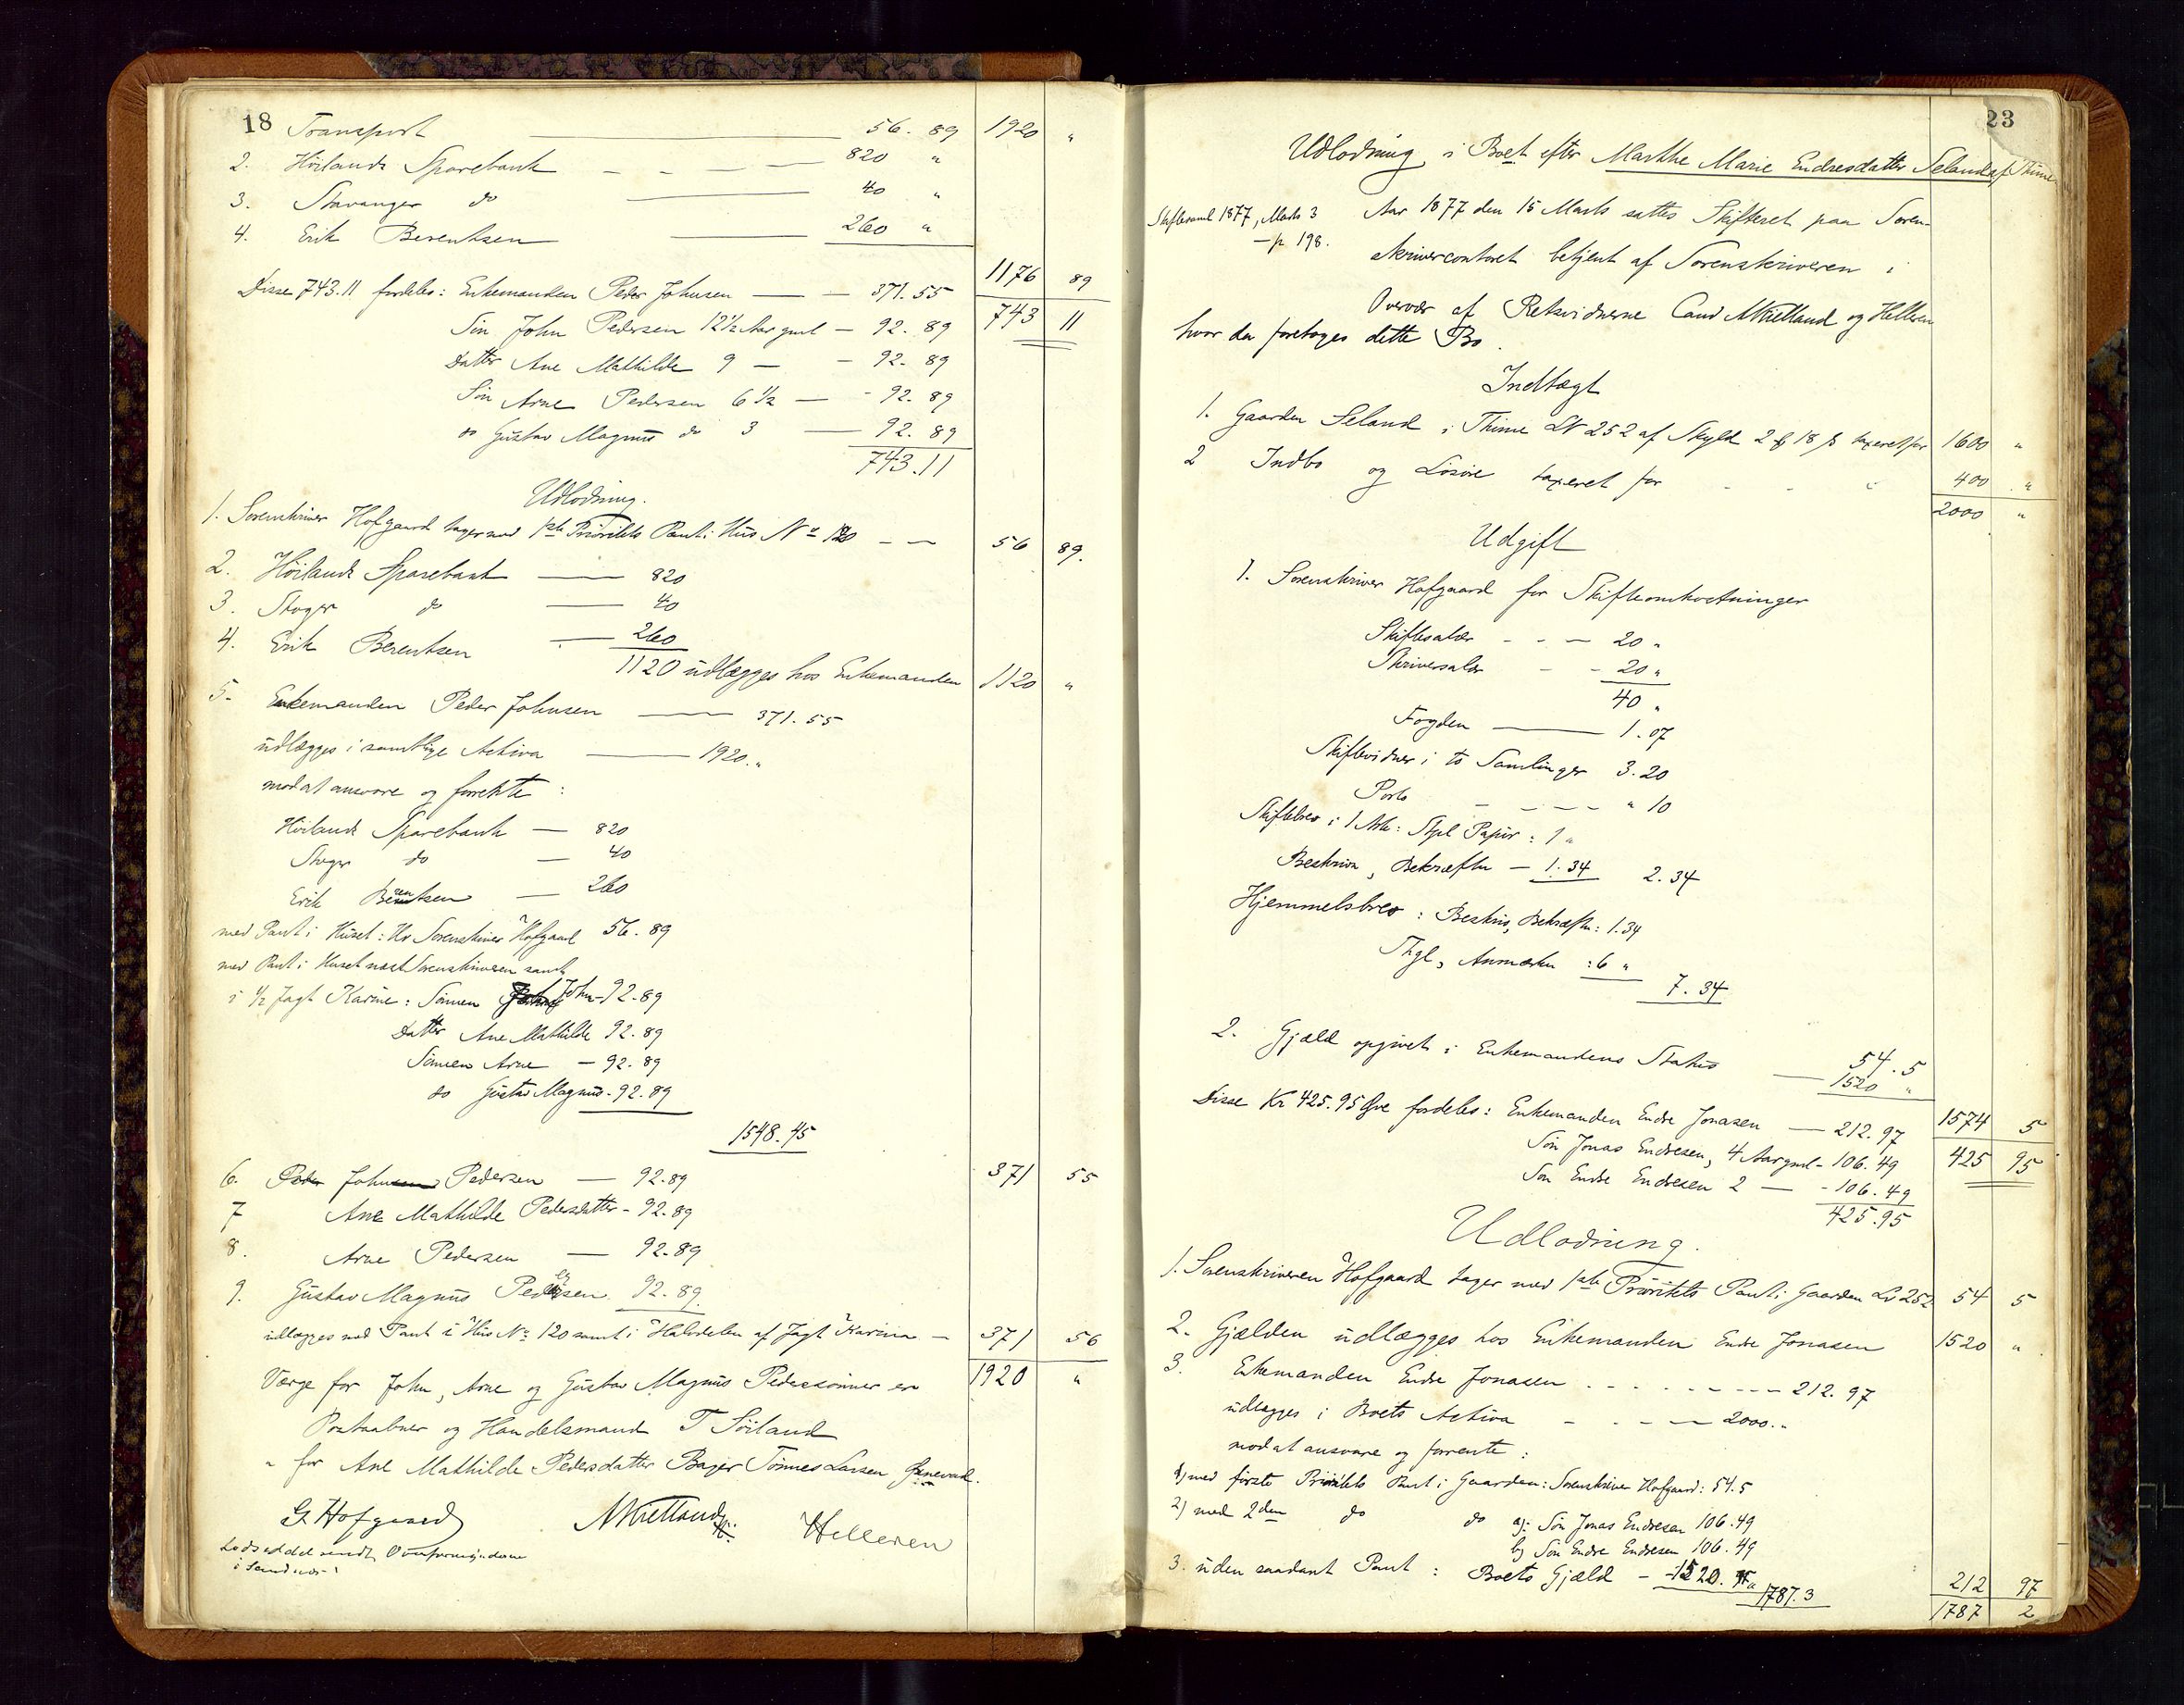 18 Transport 56. 89 1920 "
2. Höilands Sparebank 820 "
3. Stavanger do 40 "
4. Erik Berentsen 260 "
1176 89
Disse 743.11 fordeles: Enkemanden Peder Johnsen 371.55 743 11
Sön John Pedersen 12½ Aar gml 92.89
Datter Ane Mathilde 9 92.89
Sön Arne Pedersen 6½ 92.89
do Gustav Magnus do 3 92.89
743.11
Udlodning.
1. Sorenskriver Hofgaard tager med 1ste Prioritets Pant i Hus No 120 56 89.
2. Höilands Sparebank 820
3. Stvger do 40
4. Erik Berentsen 260
1120 udlægges hos Enkemanden 1120 "
5. Enkemanden Peder Johnsen 371.55
udlægges i samtlige Activa 1920 "
mod at ansvare og forrente :
Höilands Sparebank 820
Stvger do 40
Erik Berentsen 260
med Pant i Huset: Hr Sorenskriver Hofgaard 56.89
med Pant i Huset næst Sorenskriveren samt
i ½ Jagt Karine: Sönnen John 92.89
Datter Ane Mathilde 92.89
Sönnen Arne 92.89
do Gustav Magnus 92.89
1548.45
371 55
6. John Pedersen 92.89
7 Ane Mathilde Pedersdatter 92.89
8. Arne Pedersen 92.89
9. Gustav Magnus Pedersen 92.89
udlægges med Pant i Hus No 120 samt i Halvdelen af Jagt Karine 371 56
1920 "
Værge for John, Arne og Gustav Magnus Pederssönner er
Postaabner og Handelsmand T Söiland
" for Ane Mathilde Pedersdatter Bager Tönnes Larsen
G. Hofgaard AKielland Helleren
Lodseddel sendt Overformynderne
23
Udlodning i Boet efter Marthe Marie Endresdatter Seland af Thime
Skiftesaml 1877, Marts 3
p. 198.
Aar 1877 den 15 Marts sattes Skifteret paa Soren-
skrivercontoret betjent af Sorenskriveren i
Overvær af Retsvidnerne Cand AKielland og Helleren
hvor da foretoges dette Bo.
Indtægt
1. Gaarden Seland i Thime LN 252 af Skyld 2 18 ß taxeret for 1600 "
2 Indbo og Lösöre taxeret for 400 "
2000 "
Udgift
1. Sorenskriver Hofgaard for Skifteomkostninger
Skiftesalær 20 "
Skriversalær 20 "
40 "
Fogden 1.07
Skiftevidner i to Samlinger 3.20
Porto " 10
Skiftebrev i 1 Ark: Stpl Papir: 1 "
Beskrivn, Bekræftn 1.34 2.34
Hjemmelsbrev: Beskriv, Bekræftn: 1.34
Thgl, Anmærkn : 6 "
7.34
54.5
2. Gjæld opgivet i Enkemandens Status 1520 "
1574 5
Disse Kr 425.95 Øre fordeles: Enkemanden Endre Jonasen 212.97 425 95
Sön Jonas Endresen, 4 Aar gml 106.49
Sön Endre Endresen 2 106.49
425.95
Udlodning.
1. Sorenskriveren Hofgaard tager med 1ste Prioritets Pant i Gaarden LN 252 54 5
2. Gjælden udlægges hos Enkemanden Endre Jonasen 1520 "
3. Enkemanden Endre Jonasen 212.97
udlægges i Boets Activa 2000 "
mod at ansvare og forrente :
1) med förste Prioritets Pant i Gaarden: Sorenskriver Hofgaard: 54.5
2) med 2den do do a): Sön Jonas Endresen 106.49
b) Sön Endre Endresen 106.49
3. uden saadant Pant : Boets Gjæld 1520. "
1787.3 212 97
1787 2